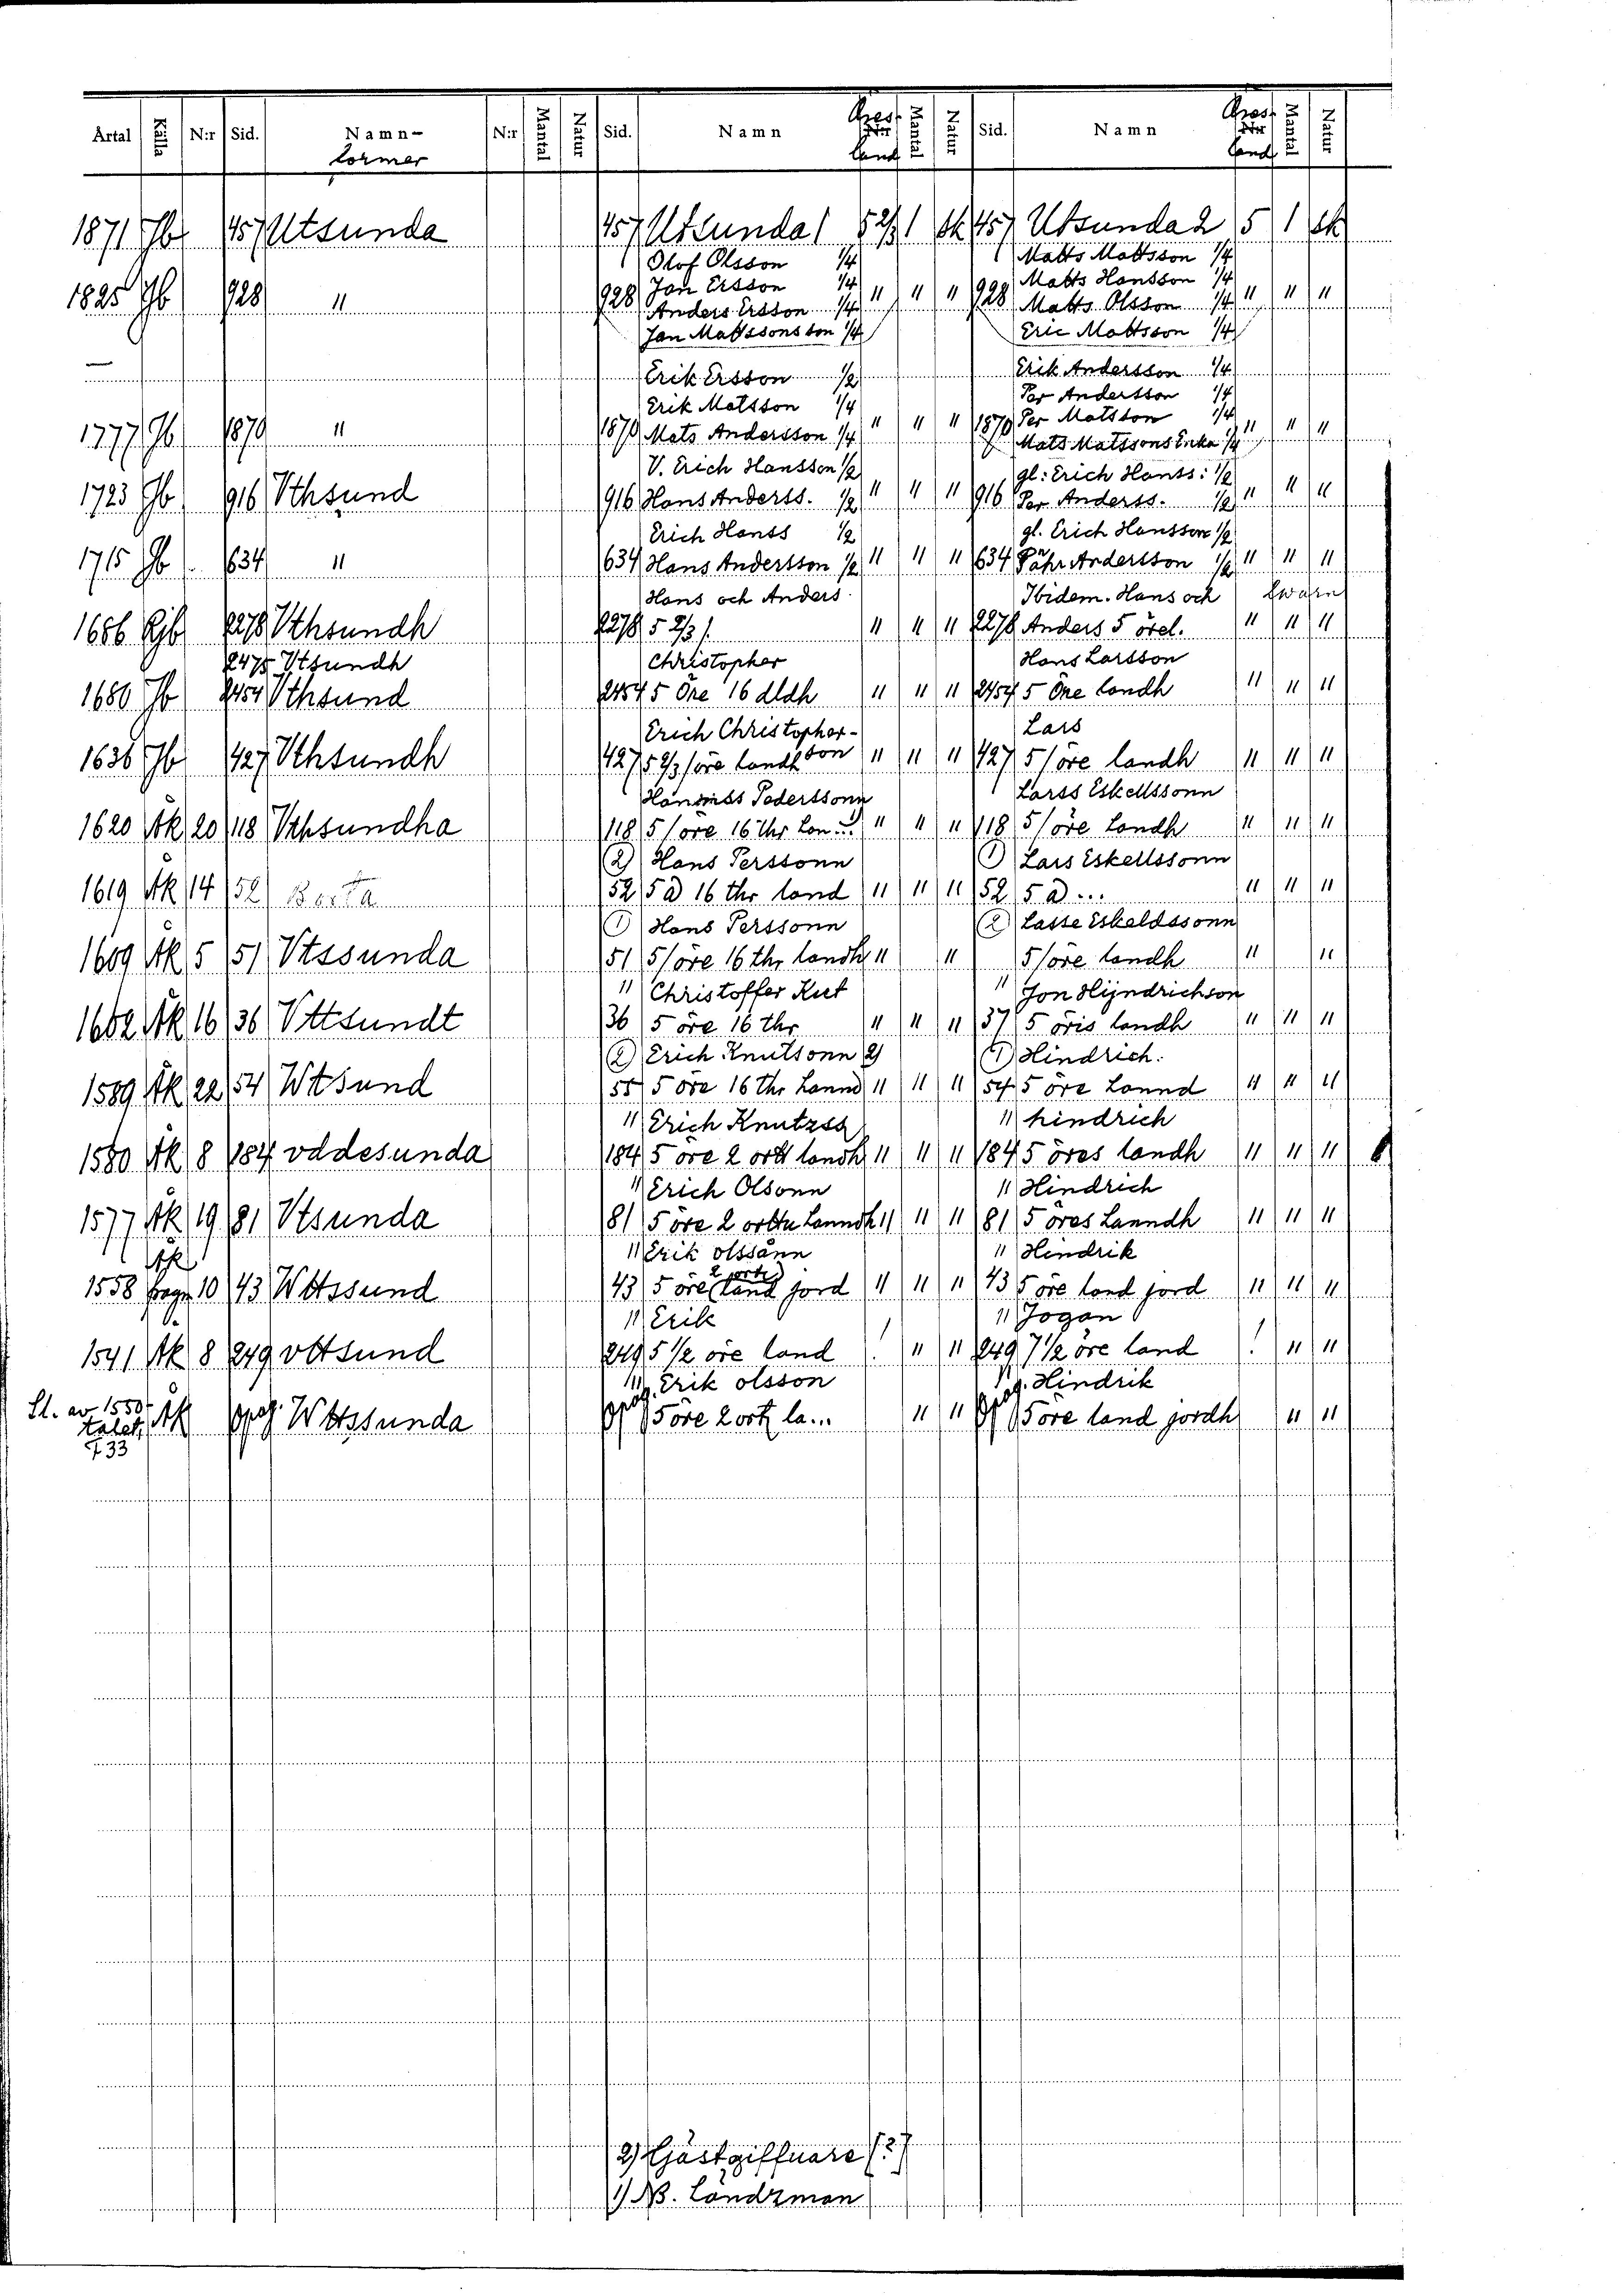 Årtal Källa N:r Sid. Namn- N:r Mantal Natur Sid. Namn Öres- land Mantal Natur Sid. Namn Öres- land Mantal Natur
former
1871 Jb 457 Utsunda 457 Utsunda 1 5 2/3 1 sk 457 Utsunda 2 5 1 sk
Olof Olsson 1/4 Matts Mattsson 1/4
1825 Jb 928 " 928 Jan Ersson 1/4 " " " 928 Matts Hansson 1/4 " " "
Anders Ersson 1/4 Matts Olsson 1/4
Jan Matssons son 1/4 Eric Mattsson 1/4
Erik Ersson 1/2 Erik Andersson 1/4
Erik Matsson 1/4 Per Andersson 1/4
1777 Jb 1870 " 1870 Mats Andersson 1/4 " " " 1870 Per Matsson 1/4 " " "
Mats Matssons Enka 1/4
V. Erich Hansson 1/2 gl: Erich Hanss: 1/2
1723 Jb 916 Vthsund 916 Hans Anderss. 1/2 " " " 916 Per Anderss. 1/2 " " "
Erich Hanss 1/2 gl. Erich Hansson 1/2
1715 Jb 634 " 634 Hans Andersson 1/2 " " " 634 Pähr Andersson 1/2 " " "
Hans och Anders Ibidem. Hans och qwarn
1686 Rjb 2278 Vthsundh 2278 5 2/3 /. " " " 2278 Anders 5 örel. " " "
2475 Vtsundh Christopher Hans Larsson
1680 Jb 2454 Vthsund 2454 5 Öre 16 dldh " " " 2454 5 Öre landh " " "
Erich Christopher- Lars
1636 Jb 427 Vthsundh 427 5 2/3 /öre landh son " " " 427 5 /öre landh " " "
Hansinss Pederssonn Larss Eskellssonn
1620 Åk 20 118 Vthsundha 118 5 /öre 16 thr Lan... " " " 118 5 /öre Landh " " "
2) Hans Perssonn 1) Lars Eskellssonn
1619 Åk 14 52 Borta 52 5 ö 16 thr land " " " 52 5 ö ... " " "
1) Hans Perssonn 2) Lasse Eskeldssonn
1609 Åk 5 51 Vtssunda 51 5 /öre 16 thr landh " " 5 /öre landh " "
" Christoffer Kut " Jon Hijndrichson
1602 Åk 16 36 Vttsundt 36 5 öre 16 thr " " " 37 5 öris landh " " "
2) Erich Knutsonn 2) 1) Hindrich.
1589 Åk 22 54 Wtsund 55 5 öre 16 thr Lannd " " " 54 5 öre Lannd " " "
" Erich Knutzsz " hindrich
1580 Åk 8 184 vddesunda 184 5 öre 2 ortt landh " " " 184 5 öres landh " " "
" Erich Olsonn " Hindrich
1577 Åk 19 81 Vtsunda 81 5 öre 2 orttu Lanndh " " " 81 5 öres Lanndh " " "
Åk " Erik olssänn " Hindrik
2 orti
1558 fragm. 10 43 Wttssund 43 5 öre land jord " " " 43 5 öre land jord " " "
" Erik " Jogan
1541 Åk 8 249 vttsund 249 5 1/2 öre land ! " " 249 7 1/2 öre land ! " "
" Erik olsson " Hindrik
Sl. av 1550-
talet Åk opag. Wttssunda opag. 5 öre 2 ortz la... " " opag. 5 öre land jordh " "
F 33
2) Gästgiffuare [?]
1) NB. Ländzman